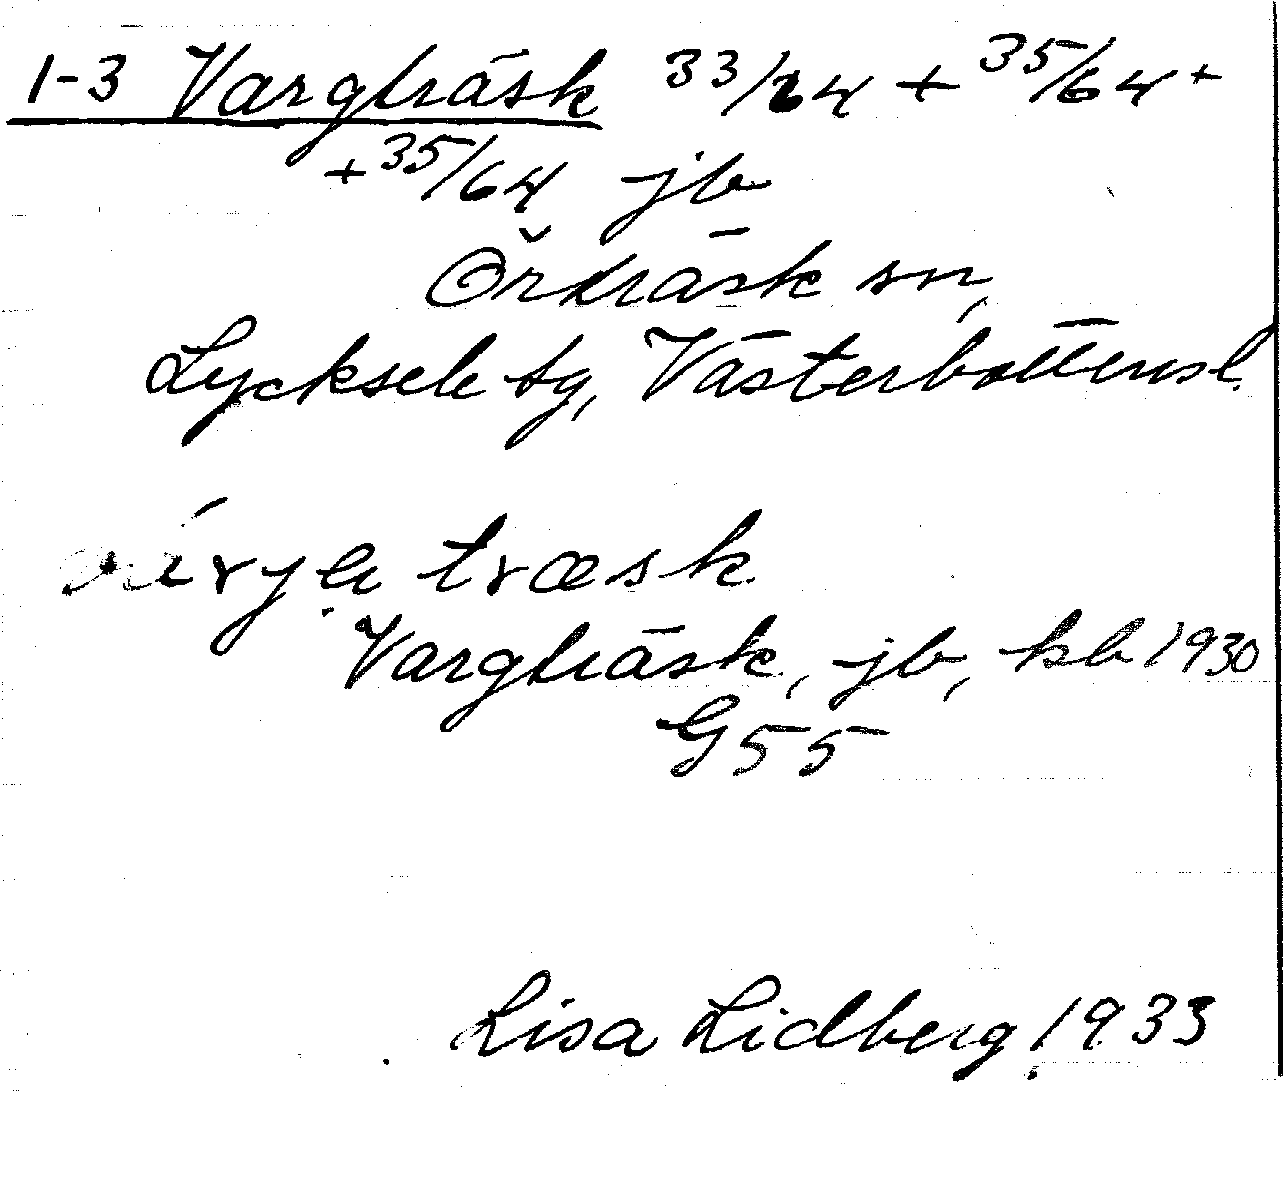 1-3 Vargträsk 33/64 + 35/64 +
+ 35/64 jb
Örträsk sn,
Lycksele tg, Västerbottensl.
Vargträsk, jb, kb 1930
G55
Lisa Lidberg 1933